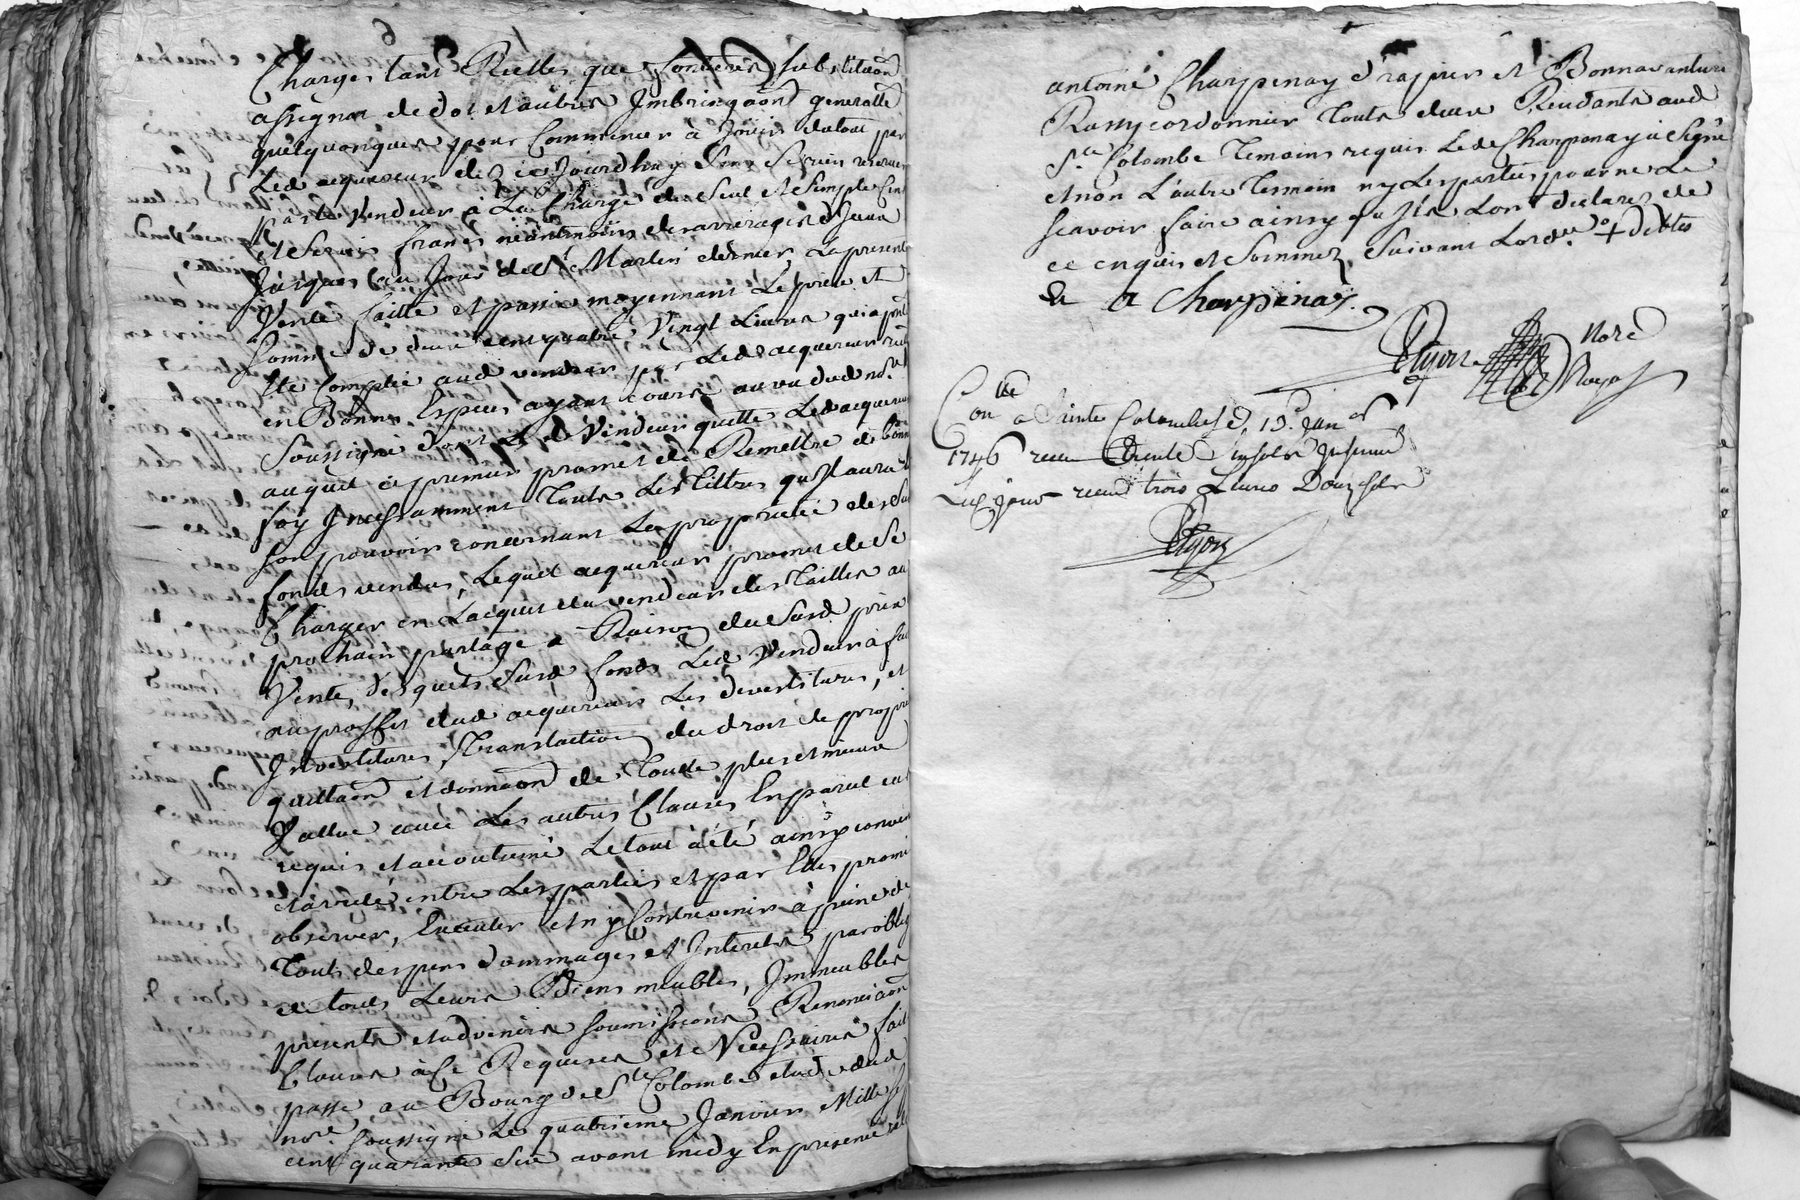 Charges tant Reelles que foncieres substitaôn
assignat de dot et autres Imbringaôn generalle
quelquonques pour Commencer à Jouir dutout par
Led acquereur dez ce Jourdhuy sans se rien reserver
par le vendeur à La Charge du seul et simple Cens
et servis francs néantmoins des arrerages d'Jceux
Jusques au Jour de S.t Martin dernier, La presente
Vente faitte et passée moyennant Le prix et
somme de deux cent quatre Vingt Livres qui a
été Comptée aud vendeur par Led acquereur
en Bonnes Especes ayant cours au vu dud no.re
soussigné dont Led Vendeur quitte Led acquereur
auquel ce premier promet de Remettre de bonne
foy Jncessamment Touts Les Tittres qu'Jl aura
son pouvoir concernant La proprieté des sud
fonds vendus, Lequel acquereur promet de se
Charger en Lacquit du vendeur des Tailles au
prochain partage a Raison du Surd prix
Vente, desquels surd fonds Led Vendeur a fait
au proffit dud acquereur Les devestitures, et
Jnvestitures, Translaction du droit de proprie
quittaôn et donnaôn de Toutte plus et mieux
Vallue avec Les autres Clauses En pareil cas
requis et accoutumé Le tout a été ainsy convenu
et arreté entre Les parties et par Elles promis
observer, Executer et n'y Contrevenir à peine de
Touts despens dommages et Jnterets par oblig
de tous Leurs Biens meubles, Jmmeubles
presents et advenirs soumissions Renonciaôn
Clauses à Ce Requises et Necessaires fait
passé au Bourg de S.te Colombe etude dud
no.re soussigné Le quatrieme Janvier Mille sept
cent quarante Six avant midy En presence de
antoine Charpenay drapier et Bonnavanture
Rony cordonnier Touts deux Residants aud
S.te Colombe Temoins requis Led Charpenay à Signé
et non L'autre Temoin ny Les parties pour ne Le
scavoir faire ainsy qu'Jls Lont declarés de
ce enquis et Sommez Suivant Lord.ce + dettes
A Charpenay.
Nore
Royal
Con.llé a Sainte Colombe Le 15.e Jan.er
1746 receu Trente
receu trois Livres Douze sols